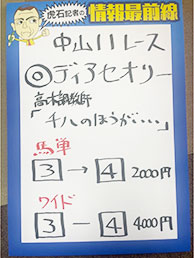 虎石記者の
情報最前線
中山11レース
◎ディアセオリー
高木調教師
「千八のほうが・・・」
馬単
3 → 4 2000円
ワイド
3 − 4 4000円